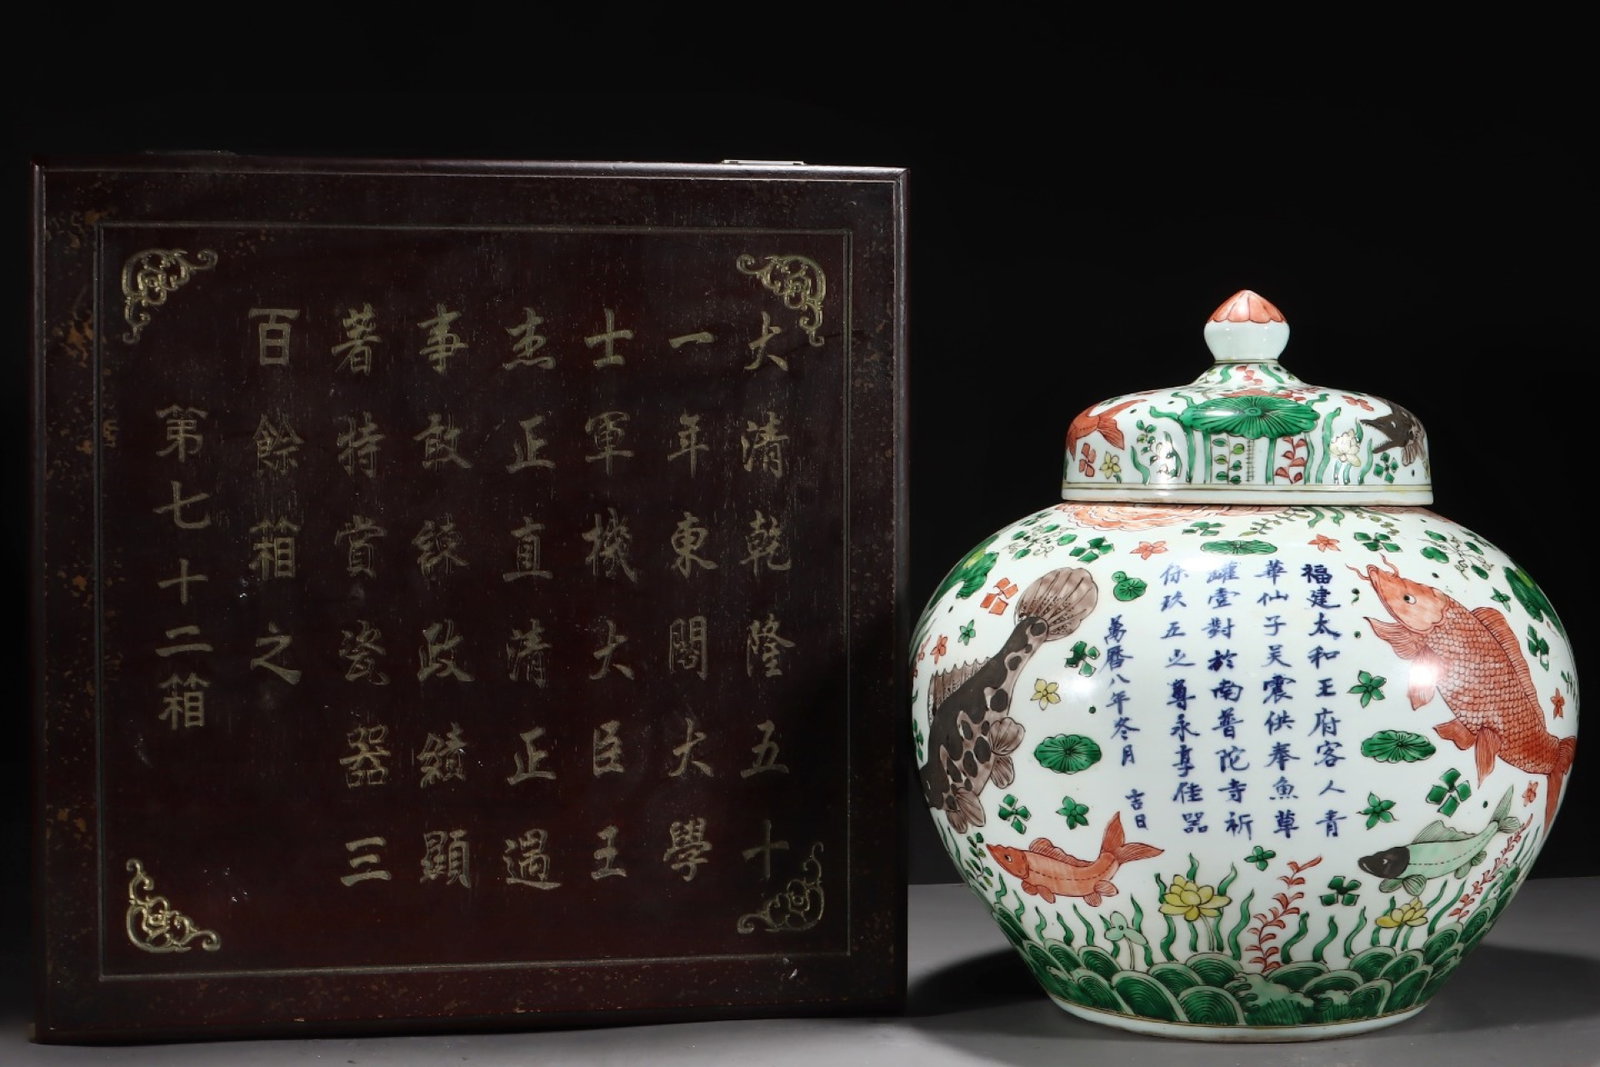 大清乾隆五十
一年東閣大學
士軍機大臣王
杰正直清正遇
事敢諫政績顯
著特賞瓷器三
百餘箱之
第七十二箱
福建太和王府客人青
華仙子吴震供奉魚草
罐壹對於南普陀寺祈
保玖五之尊永享佳器
萬曆八年冬月 吉日